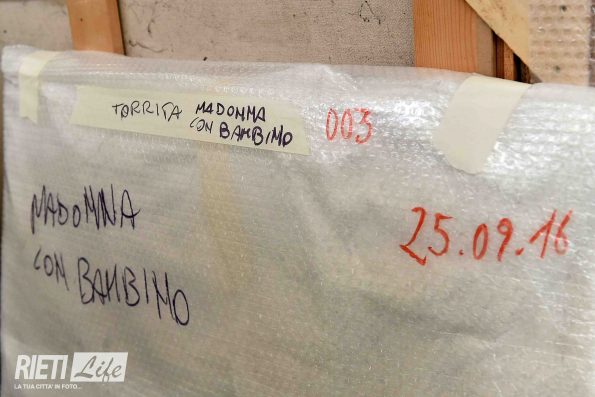 TORRITA MADONNA
CON BAMBINO
003
MADONNA
CON BAMBINO
25.09.16
RIETI Life
LA TUA CITTA' IN FOTO...